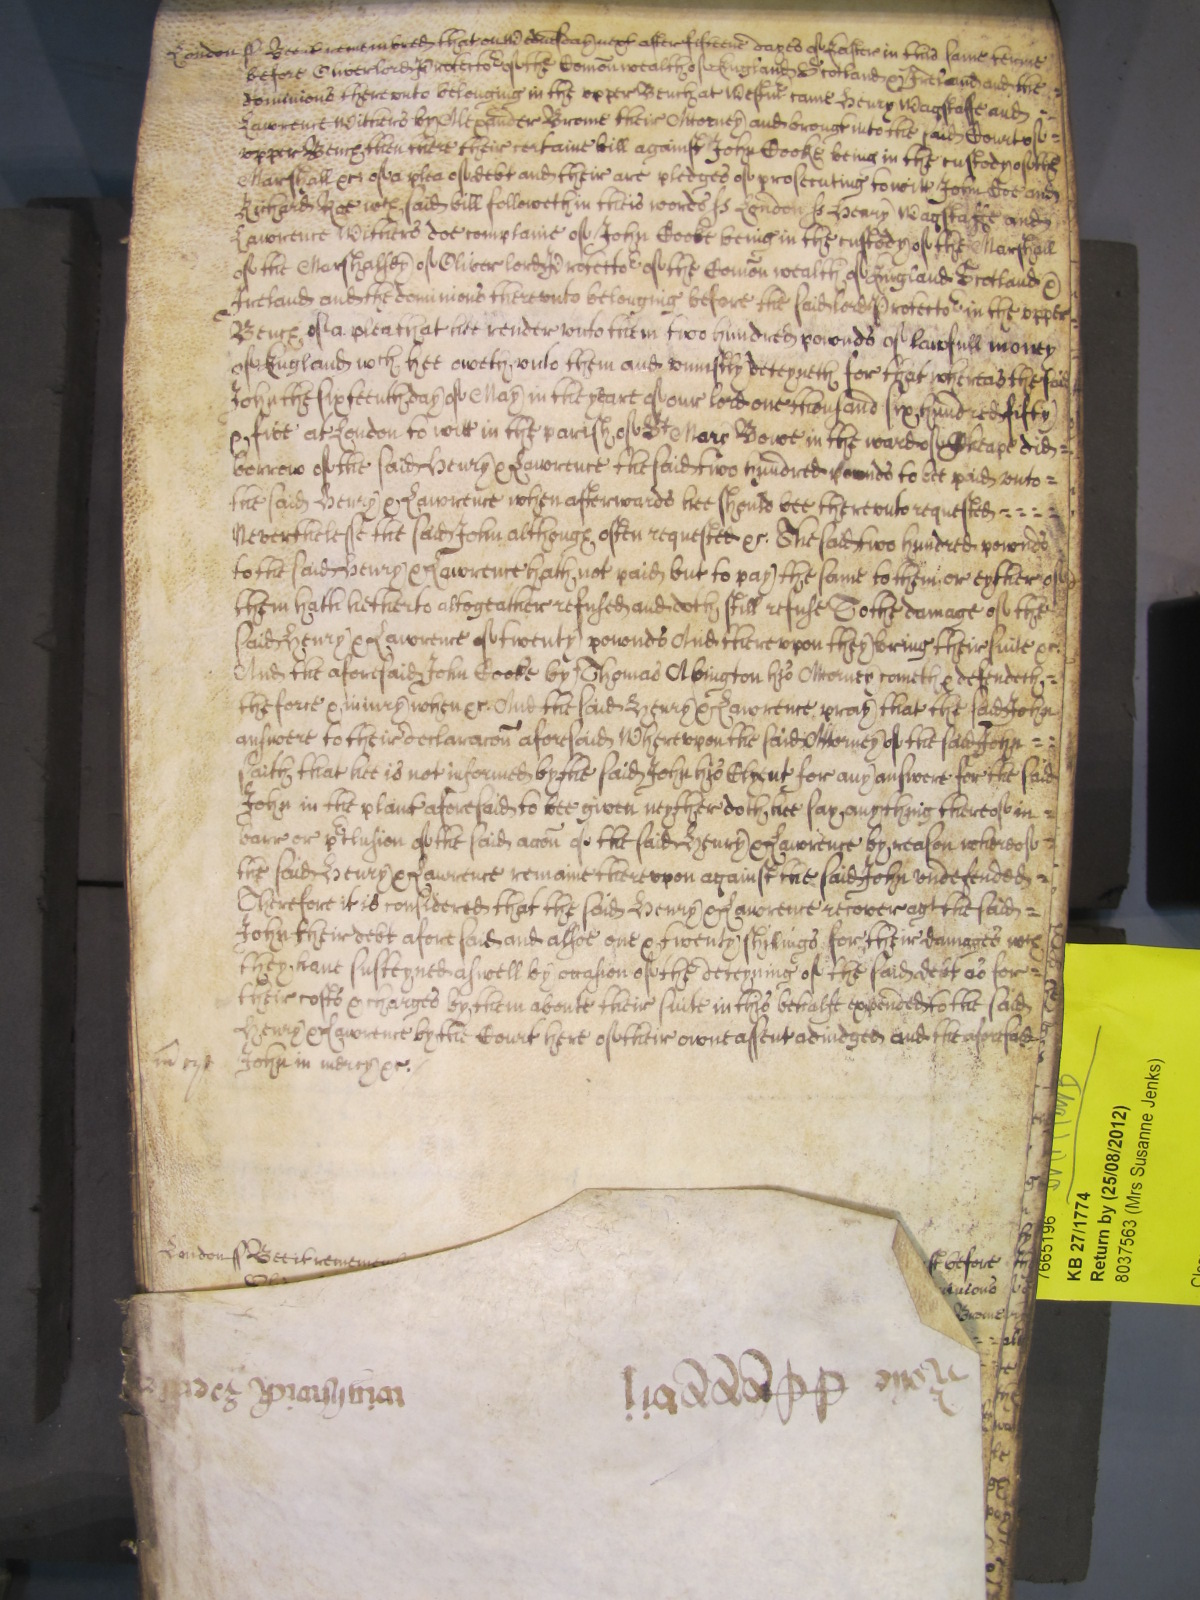 London ss Bee it remembred that on Wednesday next after fifteene dayes of Easter in this same terme
before Oliver lord Protector of the Comonwealth of England Scotland & Ireland and the
dominions thereunto belonging in the upper Bench at Westmr came Henry Wagstaffe and
Lawrence Withers by Alexander Brome their Attorney and brought into the said Court of =
upper Bench then there their certaine bill against John Cooke being in the custody of the
Marshall &c of a plea of debt and their are pledges of prosecuting to witt John Doe and
Richard Roe wch said bill followeth in theis words ss London ss Henry Wagstaffe and
Lawrence Withers doe complaine of John Cooke being in the custody of the Marshall
of the Marshallsey of Oliver lord Protector of the Comon wealth of England Scotland &
Ireland and the dominions thereunto belonging before the said lord Protector in the upper
Bench of a plea that hee render unto them two hundred pownds of lawfull money
of England wch hee oweth unto them and uniustly deteyneth for that whereas the said
John the sixteenth day of May in the yeare of our lord one thousand six hundred fifty
& five at London to witt in the parish of St Mary Bowe in the ward of Cheape did =
borrow of the said Henry & Lawrence the said two hundred pownds to bee paid unto =
the said Henry & Lawrence when afterwards hee should bee thereunto requested = = = =
Neverthelesse the said John although often requested &c. The said two hundred pownds
to the said Henry & Lawrence hath not paid but to pay the same to them or eyther of
them hath hetherto altogeather refused and doth still refuse To the damage of the
said Henry & Lawrence of twenty pownds And thereupon they bring their suite &c.
And the aforesaid John Cooke by Thomas Abington his Attorney cometh & defendeth =
the force & iniury when &c. And the said Henry & Lawrence pray that the said John
answere to their declaracon aforesaid Whereupon the said Attorney of the said John = =
saith that hee is not informed by the said John his Clyent for any answere for the said
John in the plaint aforesaid to bee given neyther doth hee say anything thereof in =
barr or p'clusion of the said acon of the said Henry & Lawrence by reason whereof =
the said Henry & Lawrence remaine thereupon against the said John undefended =
Therefore it is considered that the said Henry & Lawrence recover agt the said =
John their debt aforesaid and alsoe one & twenty shillings for their damages wch
they have susteyned aswell by occasion of the deteyning of the said debt as for =
their costs & charges by them aboute their suite in this behalfe expended to the said
Henry & Lawrence by the Court here of their owne assent adiudged and the aforesaid
John in mercy &c.
London ss Bee it rememb
before
Brome
7665196
KB 27/1774
Return by (25/08/2012)
8037563 (Mrs Susanne Jenks)